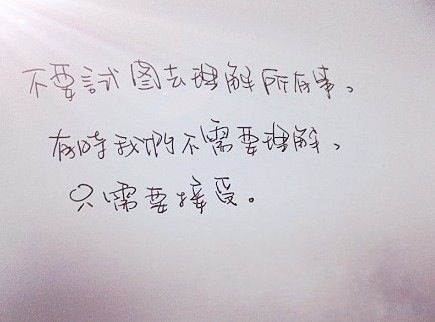 不要試图去理解所有事。
有時我們不需要理解，
只需要接受。